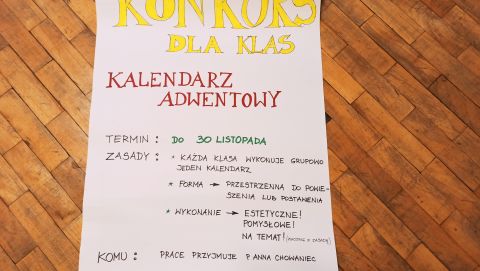 KONKURS
DLA KLAS
KALENDARZ
ADWENTOWY
TERMIN: DO 30 LISTOPADA
ZASADY: * KAŻDA KLASA WYKONUJE GRUPOWO
JEDEN KALENDARZ
* FORMA → PRZESTRZENNA DO POWIE-
SZENIA LUB POSTAWIENIA
* WYKONANIE → ESTETYCZNE!
POMYSŁOWE!
NA TEMAT!
KOMU: PRACE PRZYJMUJE P. ANNA CHOWANIEC